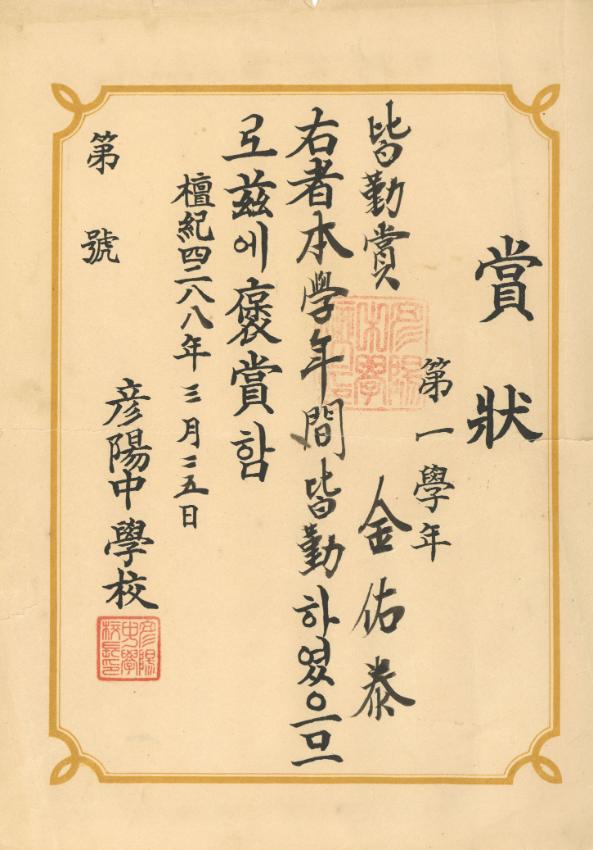 賞狀
第一學年
金佑泰
皆勤賞
右者本學年間皆勤하였으므
로玆에褒賞함
檀紀四二八八年三月二五日
彦陽中學校
第 號
彦陽
中學
校長印